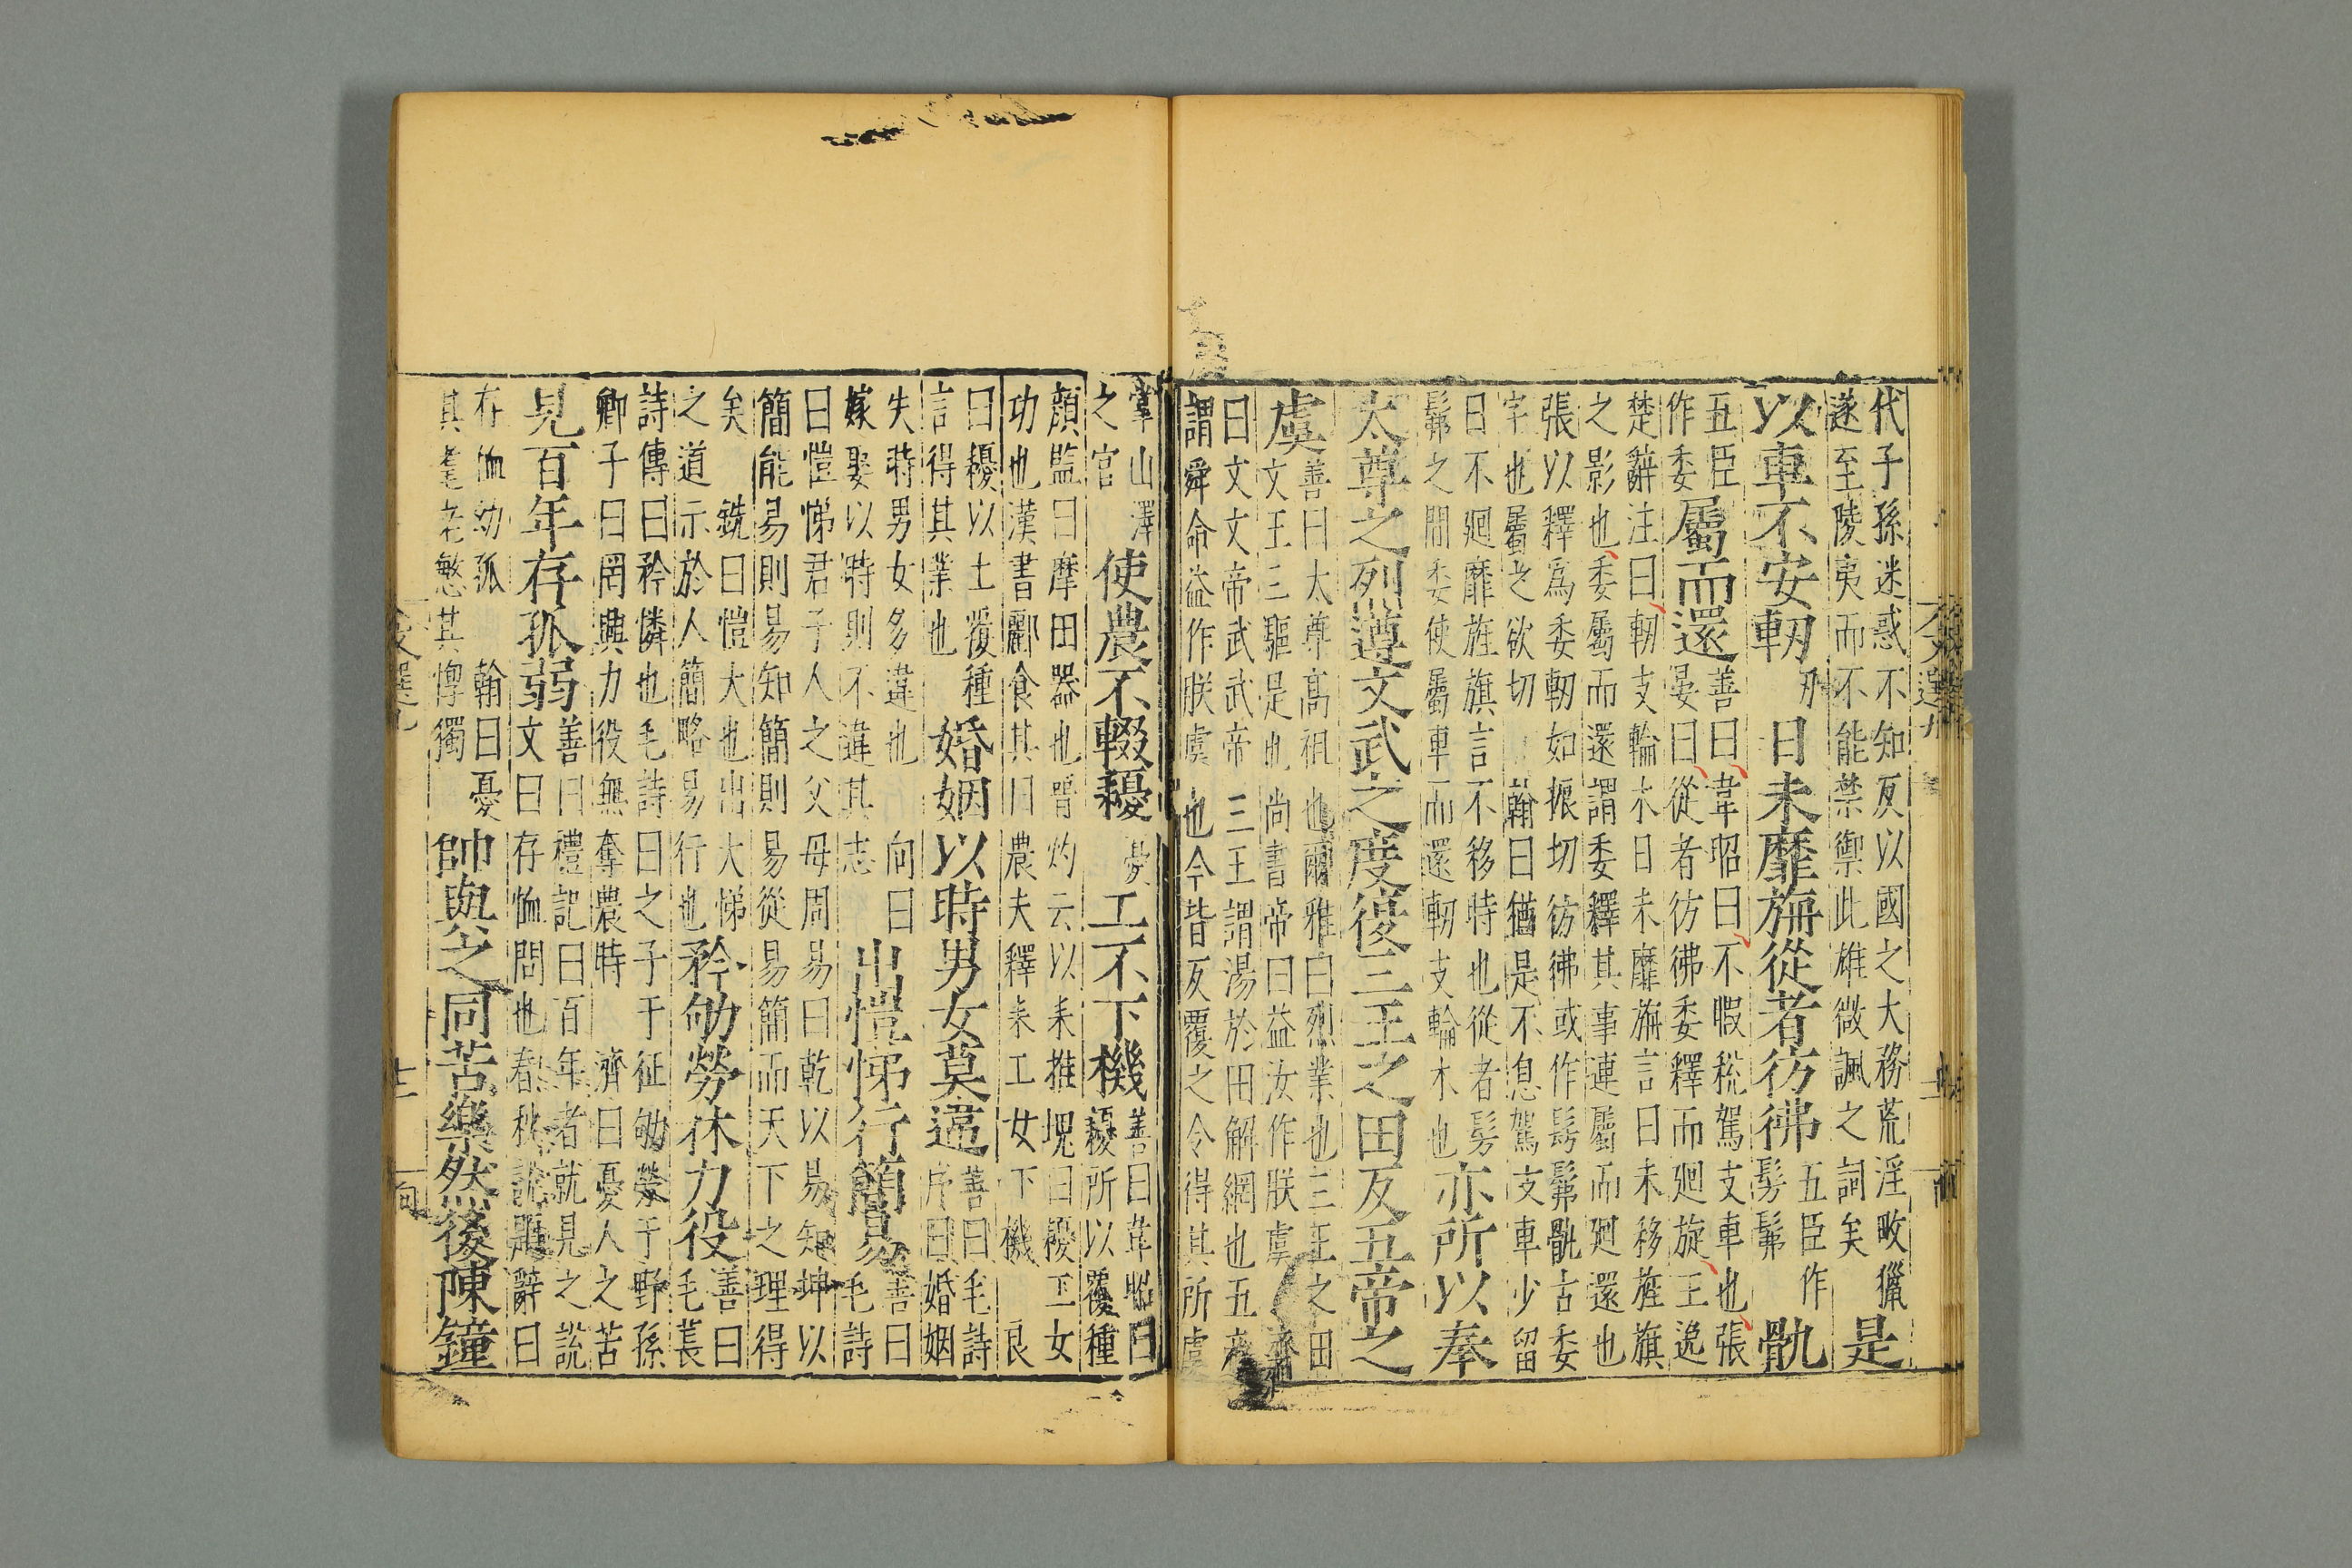 代子孫迷惑不知反以國之大務荒淫畋獵
遂至陵夷而不能禁禦此雄微諷之詞矣是
以車不安軔刃日未靡旃從者彷彿五臣作髣髴骩
五臣作委屬而還善曰韋昭曰不暇稅駕支車也張
晏曰從者彷彿委釋而廻旋王逸
楚辭注曰軔支輪木日未靡旃言日未移旌旗
之影也委屬而還謂委釋其事連屬而廻還也
張以釋爲委軔如振切彷彿或作髣髴骩古委
字也屬之欲切翰曰猶是不息駕支車少留
日不廻靡旌旗言不移時也從者髣
髴之間委使屬車而還軔支輪木也亦所以奉
太尊之烈遵文武之度復三王之田反五帝之
虞善曰太尊高祖也爾雅曰烈業也三王之田
文王三驅是也尚書帝曰益汝作朕虞濟
曰文文帝武武帝三王謂湯於田解網也五帝
謂舜命益作朕虞也今皆反覆之令得其所虞
掌山澤之官使農不輟耰憂工不下機善曰韋昭曰耰所以覆種
顔監曰摩田器也晉灼云以耒推塊曰耰工女
功也漢書酈食其曰農夫釋耒工女下機良
曰耰以土覆種言得其業也婚姻以時男女莫違善曰毛詩序曰婚姻
失時男女多違也向曰
嫁娶以時則不違其志出愷悌行簡易善曰毛詩
曰愷悌君子人之父母周易曰乾以易知坤以
簡能易則易知簡則易從易簡而天下之理得
矣銑曰愷大也出大悌
之道示於人簡略易行也矜劬勞休力役善曰毛萇
詩傳曰矜憐也毛詩曰之子于征劬勞于野孫
卿子曰罔興力役無奪農時濟曰憂人之苦
見百年存孤弱善曰禮記曰百年者就見之說文曰存恤問也春秋說題辭曰
存恤幼孤翰曰憂
其耄老慜其惸獨帥與之同苦樂然後陳鐘